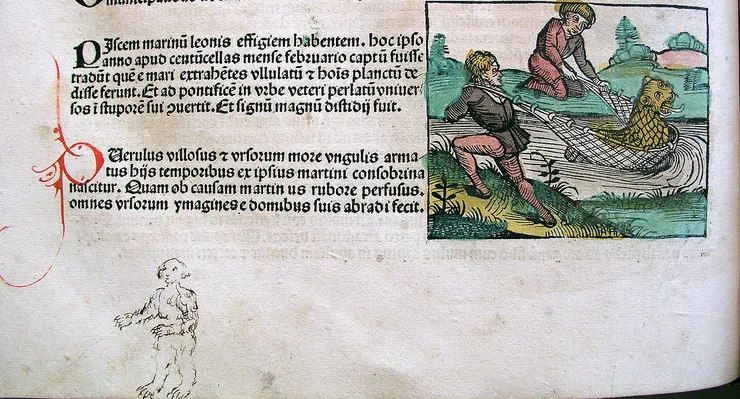 PIscem marinũ leonis effigiem habentem. hoc ipso
anno apud centũcellas mense februario captũ fuisse
tradũt quẽ e mari extrahẽtes vllulatũ ⁊ hoĩs planctũ de
disse ferunt. Et ad pontificẽ in vrbe veteri perlatũ vniuer
sos ĩ stuporẽ sui ꝯuertit. Et signũ magnũ distidij fuit.
PUerulus villosus ⁊ vrsorum more vngulis arma
tus hijs temporibus ex ipsius martini consobrina
nascitur. Quam ob causam martin us rubore perfusus.
omnes vrsorum ymagines e domibus suis abradi fecit.